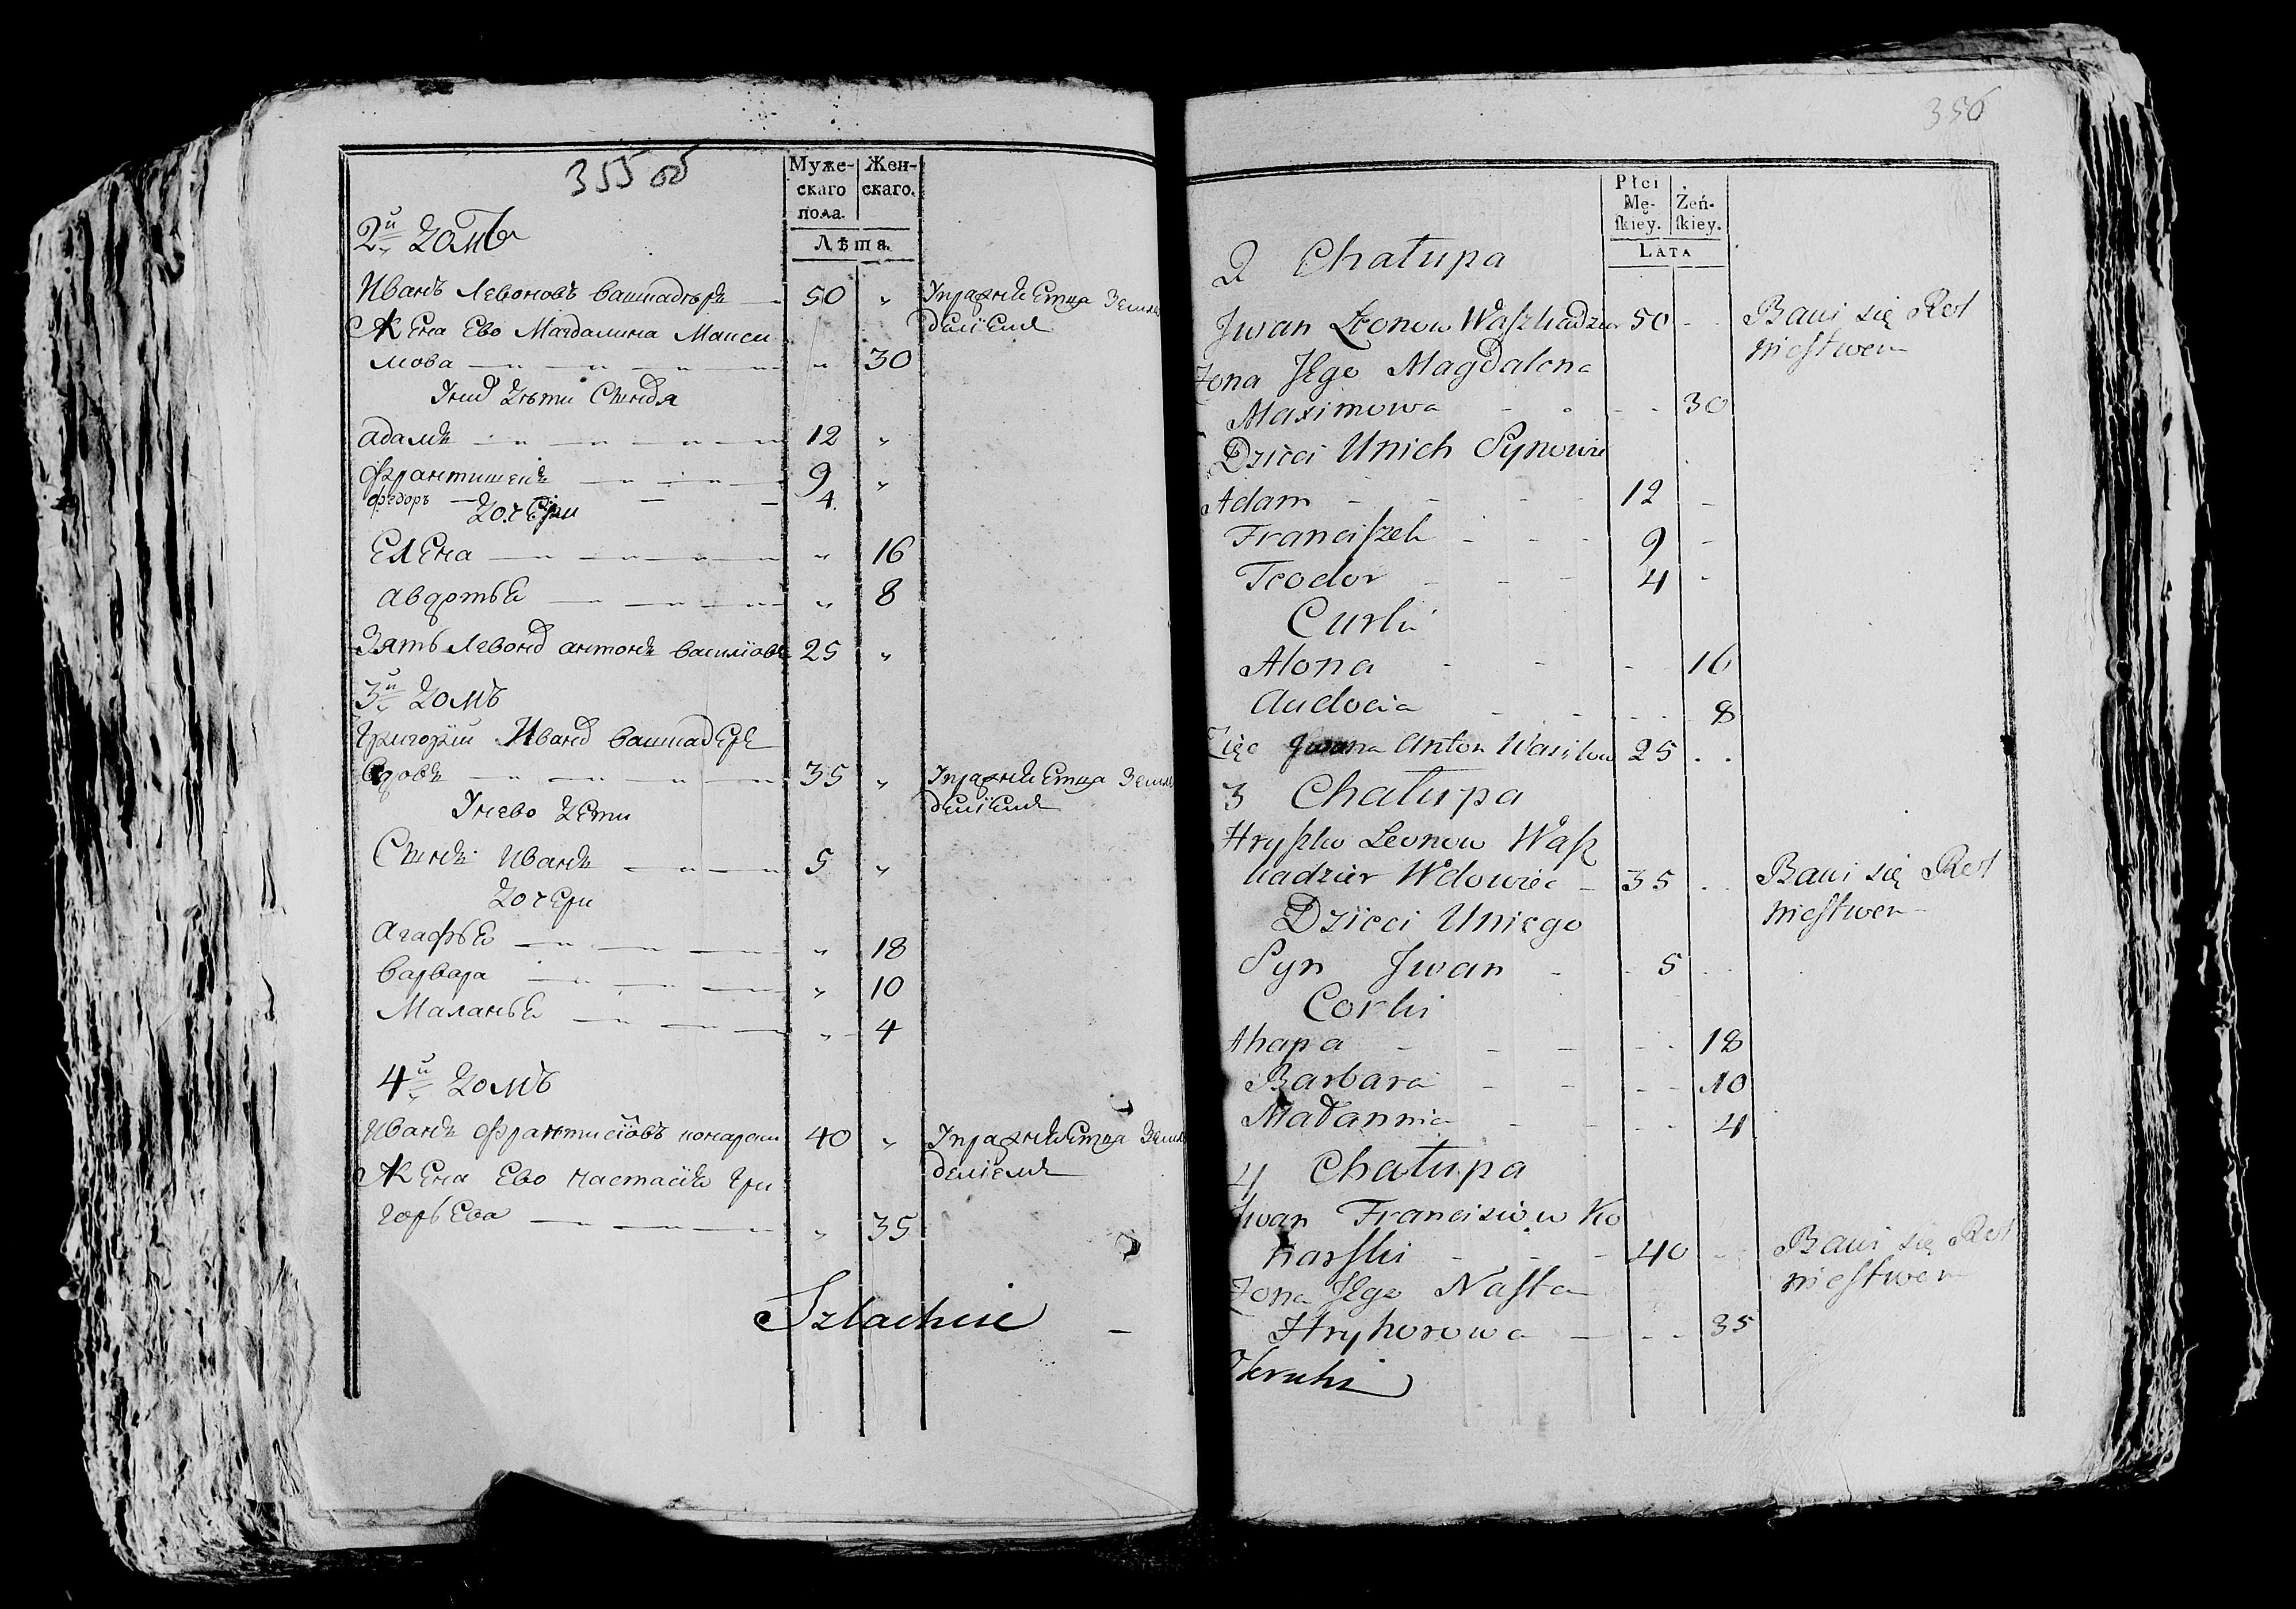 355 об
Муже-
скаго
пола.
Жен-
скаго.
Лѣта.
2й домъ
Иванъ Левоновъ вашкадъръ 50 "
Упражняетца земле
делiемъ
Жена Ево Магдалина Макси
мова " 30
У нихъ дѣти Сынъя
адамъ 12 "
Франтишекъ 9 "
Федоръ 4
дочери
Елена " 16
авдотья " 8
Зять Левона антонъ василiовъ 25 "
3й домъ
Григорий Ивановъ вашкадеръ
вдовъ 35 "
Упражняетца земле
делiемъ
У нево дети
Сынъ Иванъ 5 "
дочери
агафья " 18
варвара " 10
Маланья " 4
4й домъ
Иванъ Франтисiовъ конарски 40 "
Упражняетца земле
делiемъ
Жена Ево настасия гри
горьева " 35
Szlachcic
356
Płci
Mę-
ſkiey.
Żeń-
ſkiey.
LATA
2 Chałupa
Jwan Leonow Waſzkadzier 50
Bawi się Rol
nieſtwem
Zona Jego Magdalena
Maximowa 30
Dzieci Unich Synowie
Adam 12
Franciſzek 9
Teodor 4
Curki
Alona 16
Audocia 8
Zięc Jwana Anton Wasilow 25
3 Chałupa
Hryſzko Leonow Waſz
kadzier Wdowiec 35
Bawi się Rol
nieſtwem
Dzieci Uniego
Syn Jwan 5
Corki
Ahapa 18
Barbara 10
Małannia 4
4 Chałupa
Jwan Francisiow Ko
narſki 40
Bawi się Rol
nieſtwem
Zona Jego Naſta
Hryhorowa 35